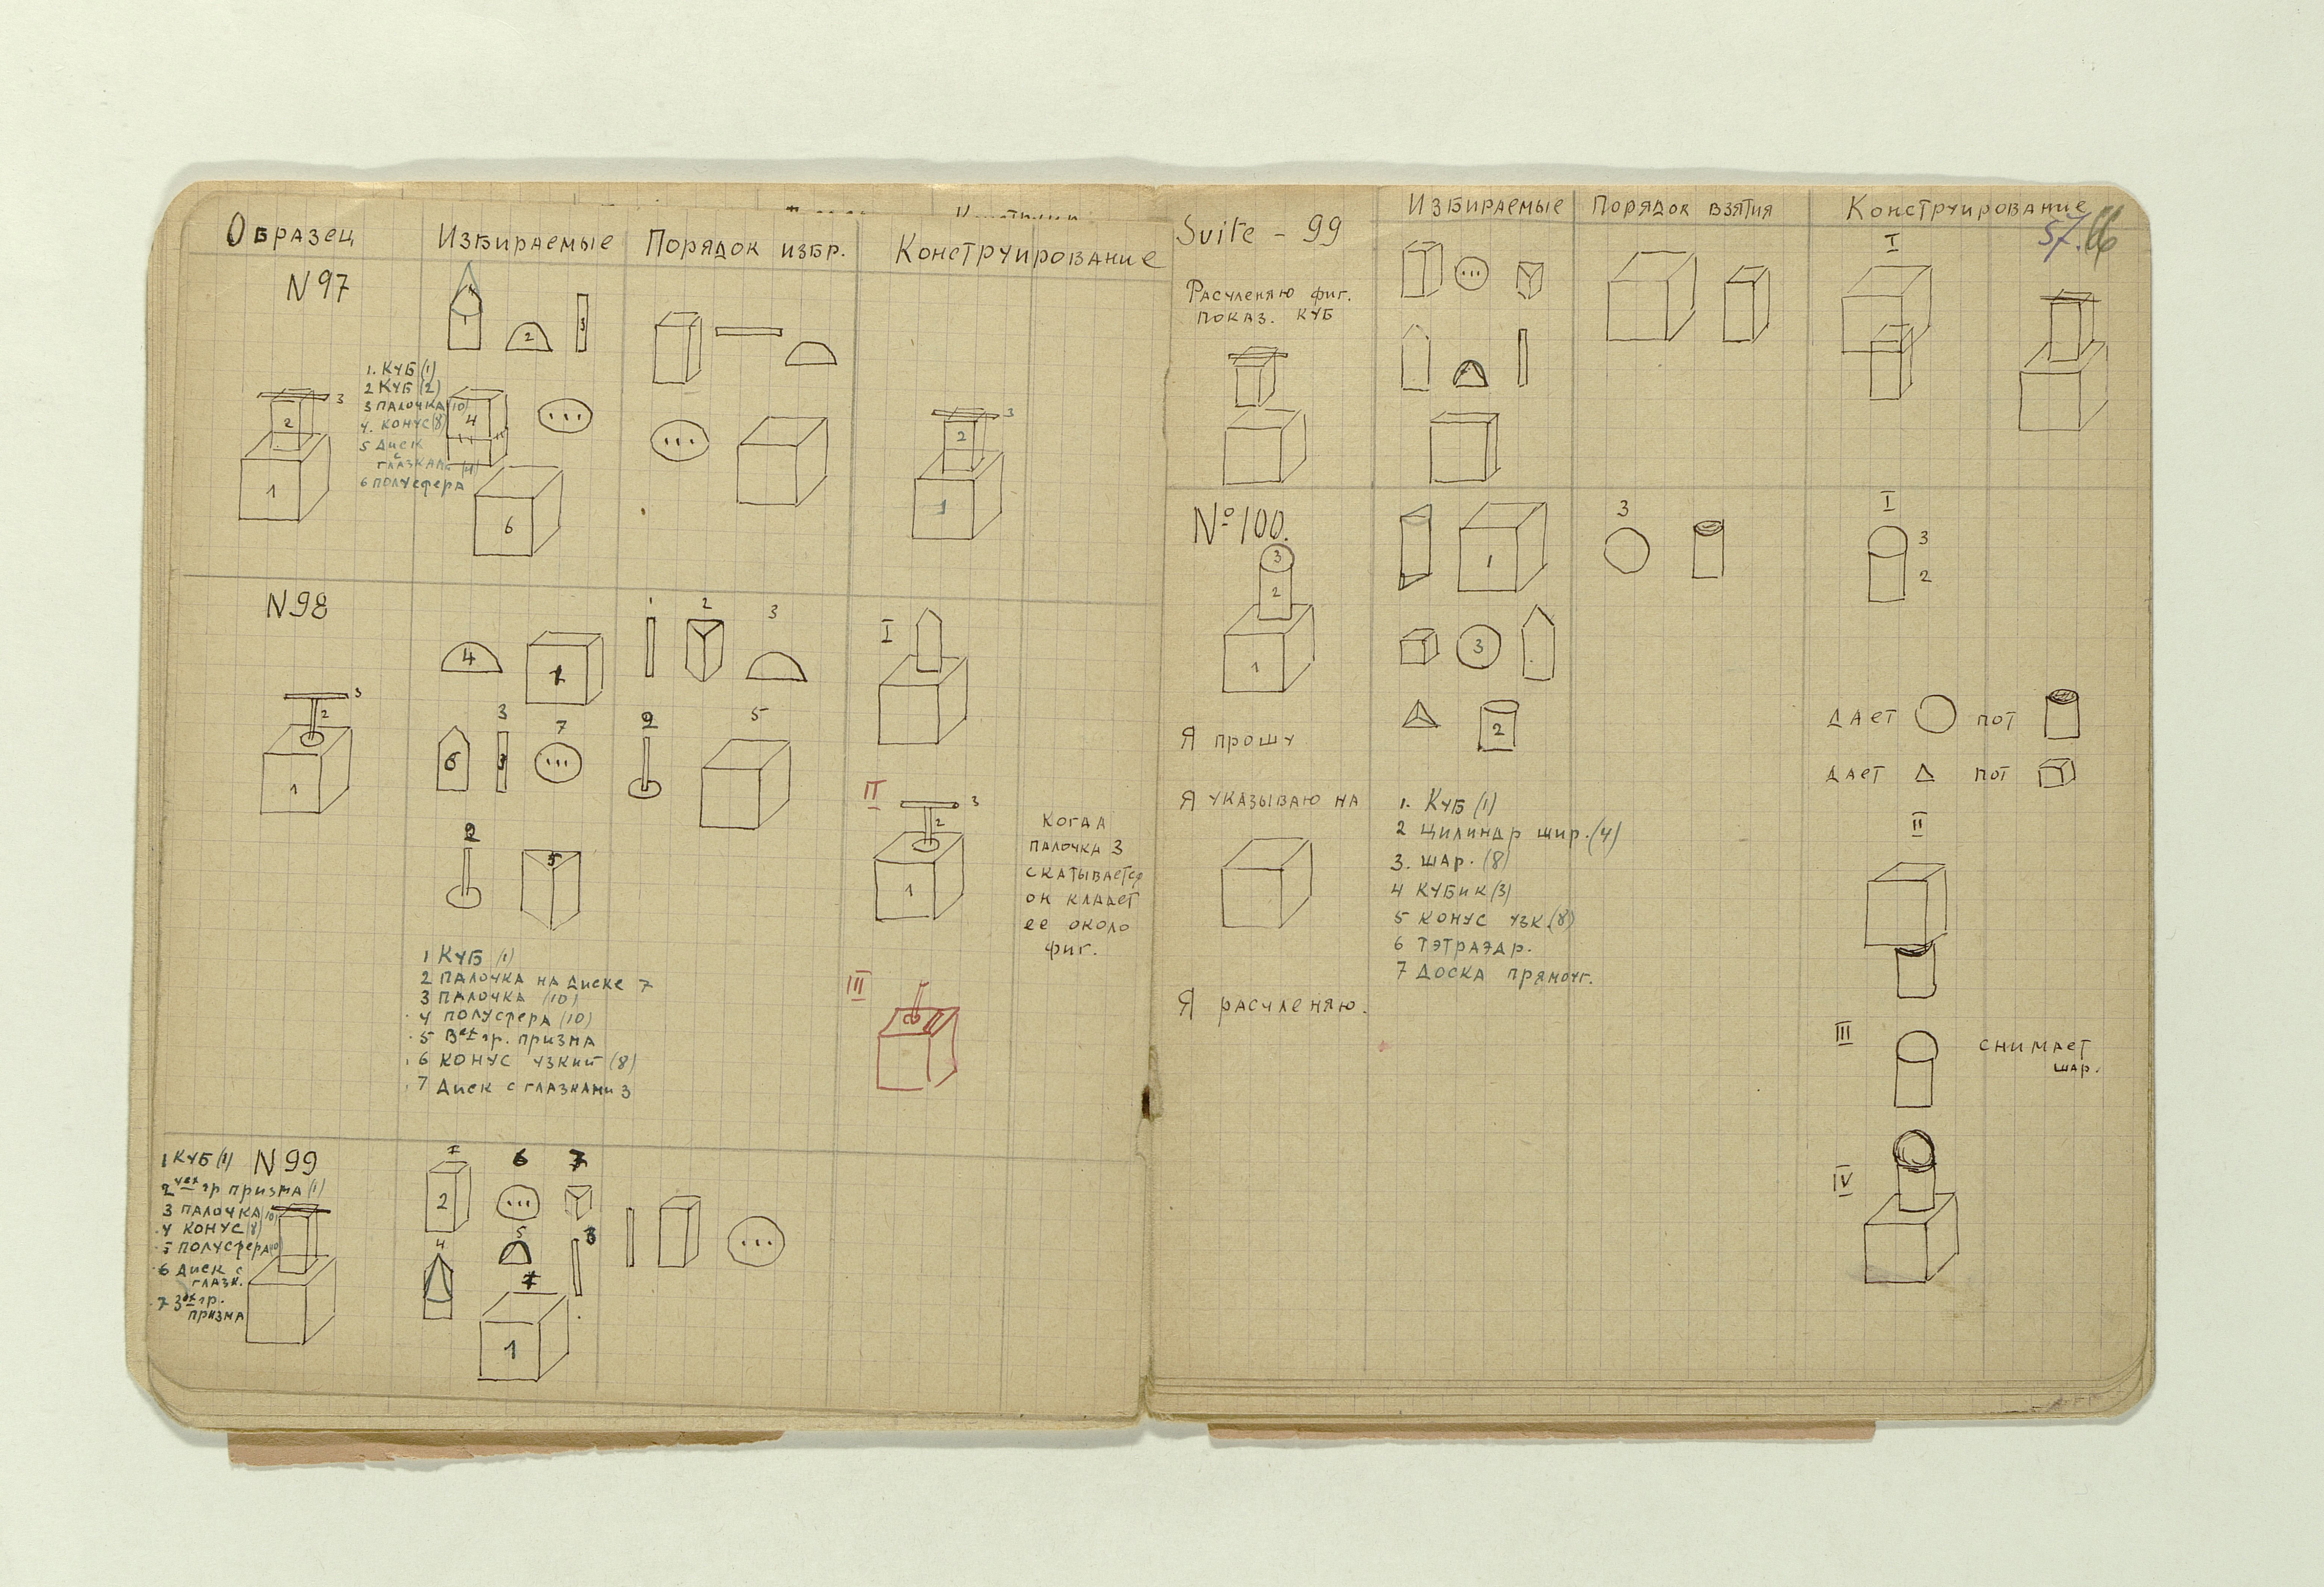 Образец
Избираемые
Порядок избр.
Конструирование
N 97
1
2
3
1. Куб (1)
2 Куб (2)
3 палочка (10)
4. конус (8)
5 Диск
с
глазками (4)
6 полусфера
3
2
1
4
6
3
2
1
N 98
3
2
1
4
1
3
7
6
2
5
1 Куб (1)
2 палочка на диске 7
3 палочка (10)
4 полусфера (10)
5 3ех гр. призма
6 конус узкий (8)
7 Диск с глазками 3
1
2
3
2
5
I
II
3
2
1
III
когда
палочка 3
скатывается
он кладет
ее около
фиг.
N 99
1 Куб (1)
2 чех гр призма (1)
3 палочка (10)
4 конус (8)
5 полусфера (10)
6 диск с
глазк.
7 3ех гр.
призма
2
6
7
4
5
3
1
Suite - 99
Избираемые
Порядок взятия
Конструирование
57.
66
Расчленяю фиг.
показ. куб
I
№ 100.
3
2
1
1
3
2
3
I
3
2
Я прошу
дает
пот
дает
пот
Я указываю на
1. Куб (1)
2 цилиндр шир. (4)
3. шар. (8)
4 кубик (3)
5 конус узк. (8)
6 тэтраэдр.
7 доска прямоуг.
II
Я расчленяю.
III
снимает
шар.
IV